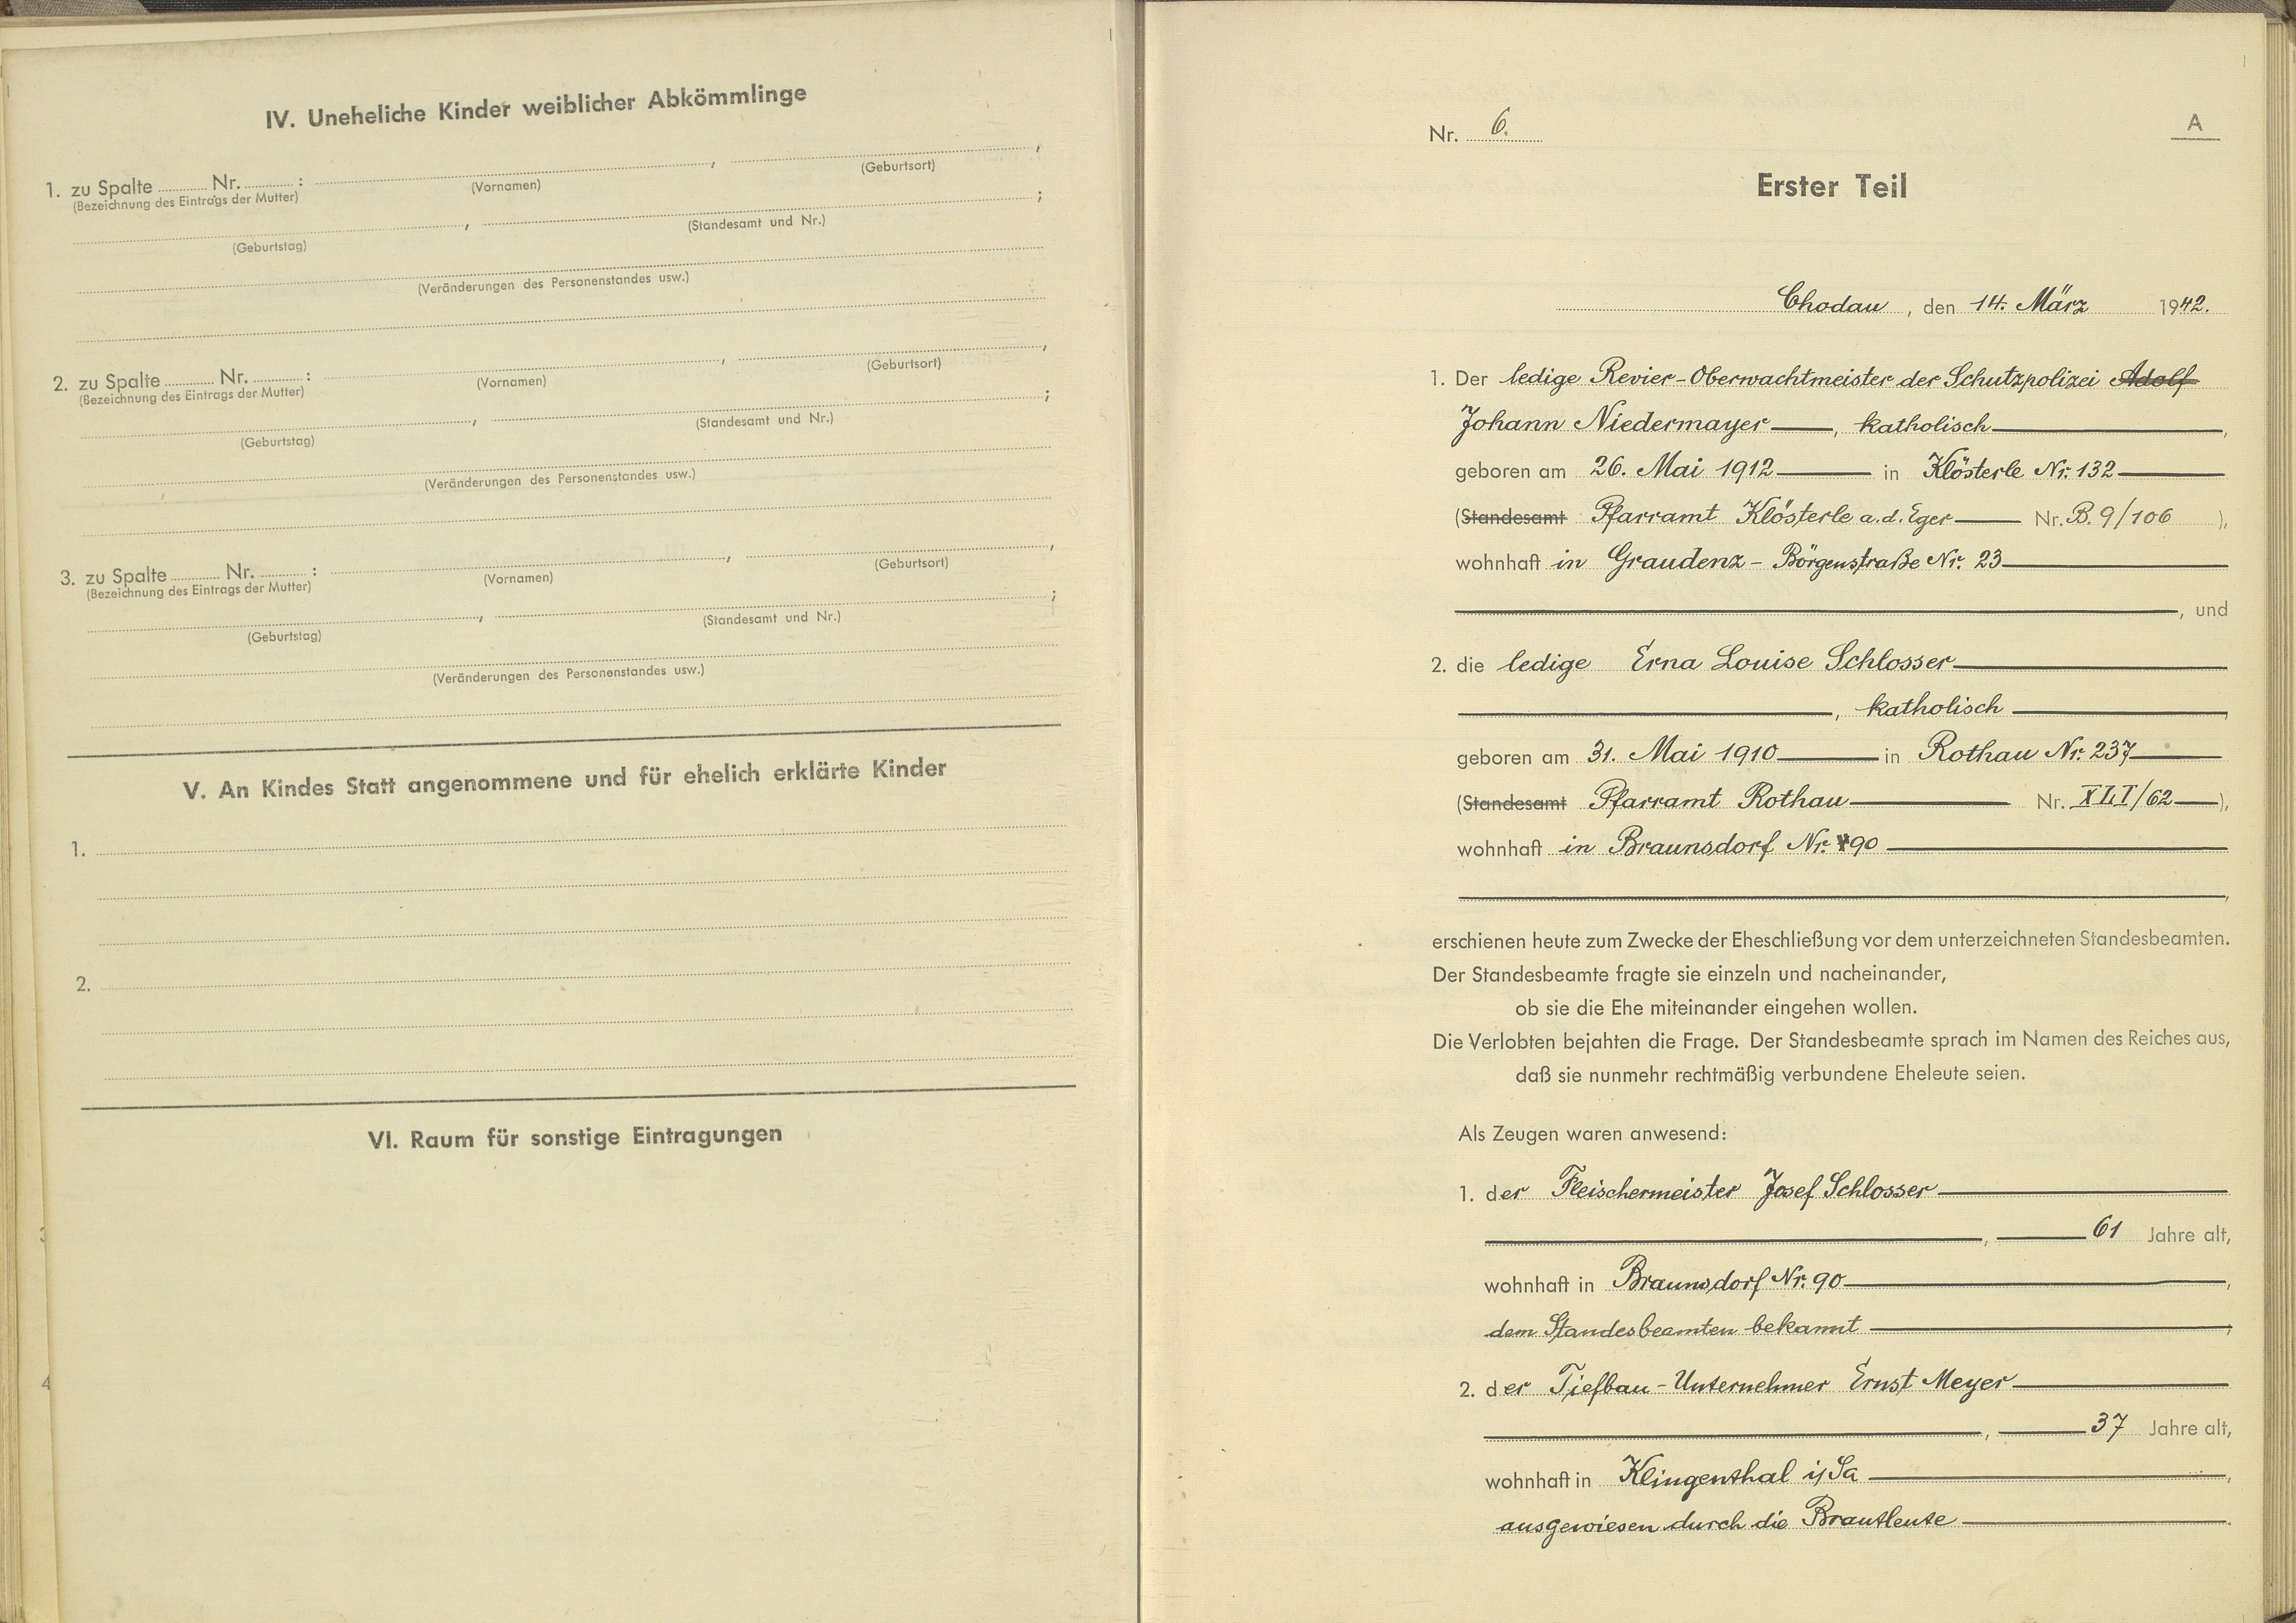 IV. Uneheliche Kinder weiblicher Abkömmlinge
1. zu Spalte ........ Nr. ........ : ........ , ........ ,
(Bezeichnung des Eintrags der Mutter) (Vornamen) (Geburtsort)
........ , ........ ;
(Geburtstag) (Standesamt und Nr.)
(Veränderungen des Personenstandes usw.)
2. zu Spalte ........ Nr. ........ : ........ , ........ ,
(Bezeichnung des Eintrags der Mutter) (Vornamen) (Geburtsort)
........ , ........ ;
(Geburtstag) (Standesamt und Nr.)
(Veränderungen des Personenstandes usw.)
3. zu Spalte ........ Nr. ........ : ........ , ........ ,
(Bezeichnung des Eintrags der Mutter) (Vornamen) (Geburtsort)
........ , ........ ;
(Geburtstag) (Standesamt und Nr.)
(Veränderungen des Personenstandes usw.)
V. An Kindes Statt angenommene und für ehelich erklärte Kinder
1.
2.
VI. Raum für sonstige Eintragungen
4
Nr. 6. A
Erster Teil
Chodau, den 14. März 1942.
1. Der ledige Revier-Oberwachtmeister der Schutzpolizei Adolf
Johann Niedermayer, katholisch,
geboren am 26. Mai 1912 in Klösterle Nr. 132
(Standesamt Pfarramt Klösterle a.d. Eger Nr. B. 9/106 ),
wohnhaft in Graudenz - Börgenstraße Nr. 23
, und
2. die ledige Erna Louise Schlosser
, katholisch,
geboren am 31. Mai 1910 in Rothau Nr. 237
(Standesamt Pfarramt Rothau Nr. XLI/62),
wohnhaft in Braunsdorf Nr. 90
,
erschienen heute zum Zwecke der Eheschließung vor dem unterzeichneten Standesbeamten.
Der Standesbeamte fragte sie einzeln und nacheinander,
ob sie die Ehe miteinander eingehen wollen.
Die Verlobten bejahten die Frage. Der Standesbeamte sprach im Namen des Reiches aus,
daß sie nunmehr rechtmäßig verbundene Eheleute seien.
Als Zeugen waren anwesend:
1. der Fleischermeister Josef Schlosser
, 61 Jahre alt,
wohnhaft in Braunsdorf Nr. 90,
dem Standesbeamten bekannt,
2. der Tiefbau-Unternehmer Ernst Meyer
, 37 Jahre alt,
wohnhaft in Klingenthal i/Sa,
ausgewiesen durch die Brautleute.